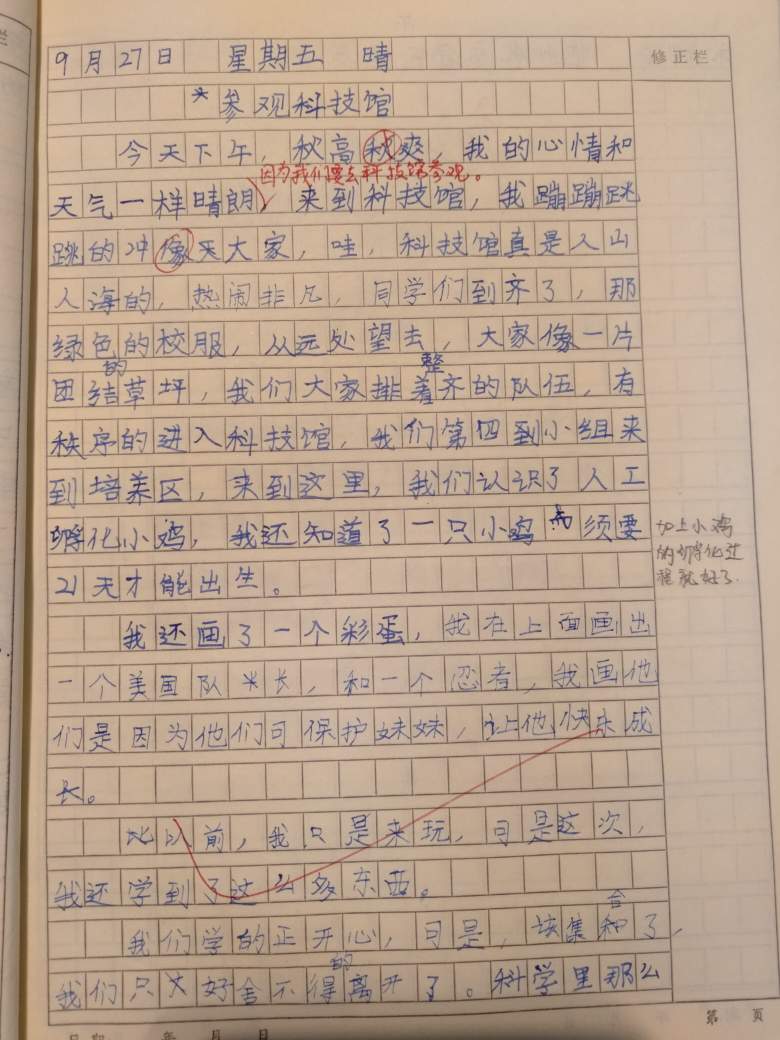 修正栏
9月27日 星期五 晴
*参观科技馆
今天下午，秋高秋爽，我的心情和
因为我们要去科技馆参观。
天气一样晴朗，来到科技馆，我蹦蹦跳
跳的冲像天大家，哇，科技馆真是人山
人海的，热闹非凡，同学们到齐了，那
绿色的校服，从远处望去，大家像一片
的
团结草坪，我们大家排着齐的队伍，有
整
秩序的进入科技馆，我们第四到小组来
到培养区，来到这里，我们认识了人工
孵化小鸡，我还知道了一只小鸡 须要
加上小鸡
的孵化过
程就好了.
21天才能出生。
我还画了一个彩蛋，我在上面画出
一个美国队长，和一个忍者，我画他
们是因为他们可保护妹妹，让他快乐成
长。
比以前，我只是来玩，可是这次，
我还学到了这么多东西。
我们学的正开心，可是，该集和了，
合
我们只大好舍不得离开了。科学里那么
的
第 页
年 月 日